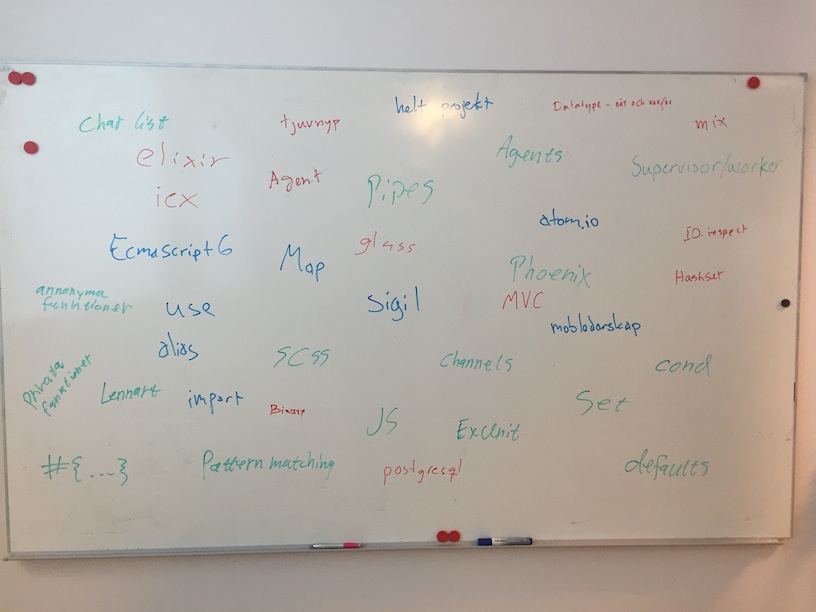 helt projekt
Char list
tjuvnyp
Datatype - när och var/ör
mix
elixir
Agents
Supervisor/worker
iex
Agent
Pipes
atom.io
IO.inspect
Ecmascript6
Map
glass
Phoenix
Hashset
annonyma
funktioner
use
Sigil
MVC
mobledarskap
alias
SCSS
Channels
cond
Privata
funktioner
Lennart
import
Binary
JS
ExUnit
Set
#{...}
Pattern matching
postgresql
defaults